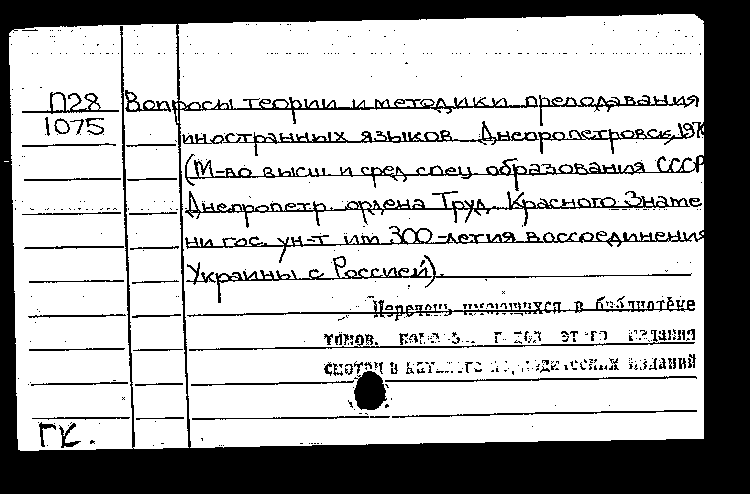 П28 Вопросы теории и методики преподавания
1075 иностранных языков. Днепропетровск, 197
(М-во высш. и сред. спец. образования СССР
Днепропетр. ордена Труд. Красного Знаме
ни гос. ун-т им 300-летия воссоединения
Украины с Россией).
Перечень имеющихся в библиотеке
томов, этого издания
смотри в каталоге периодических изданий
ГК.